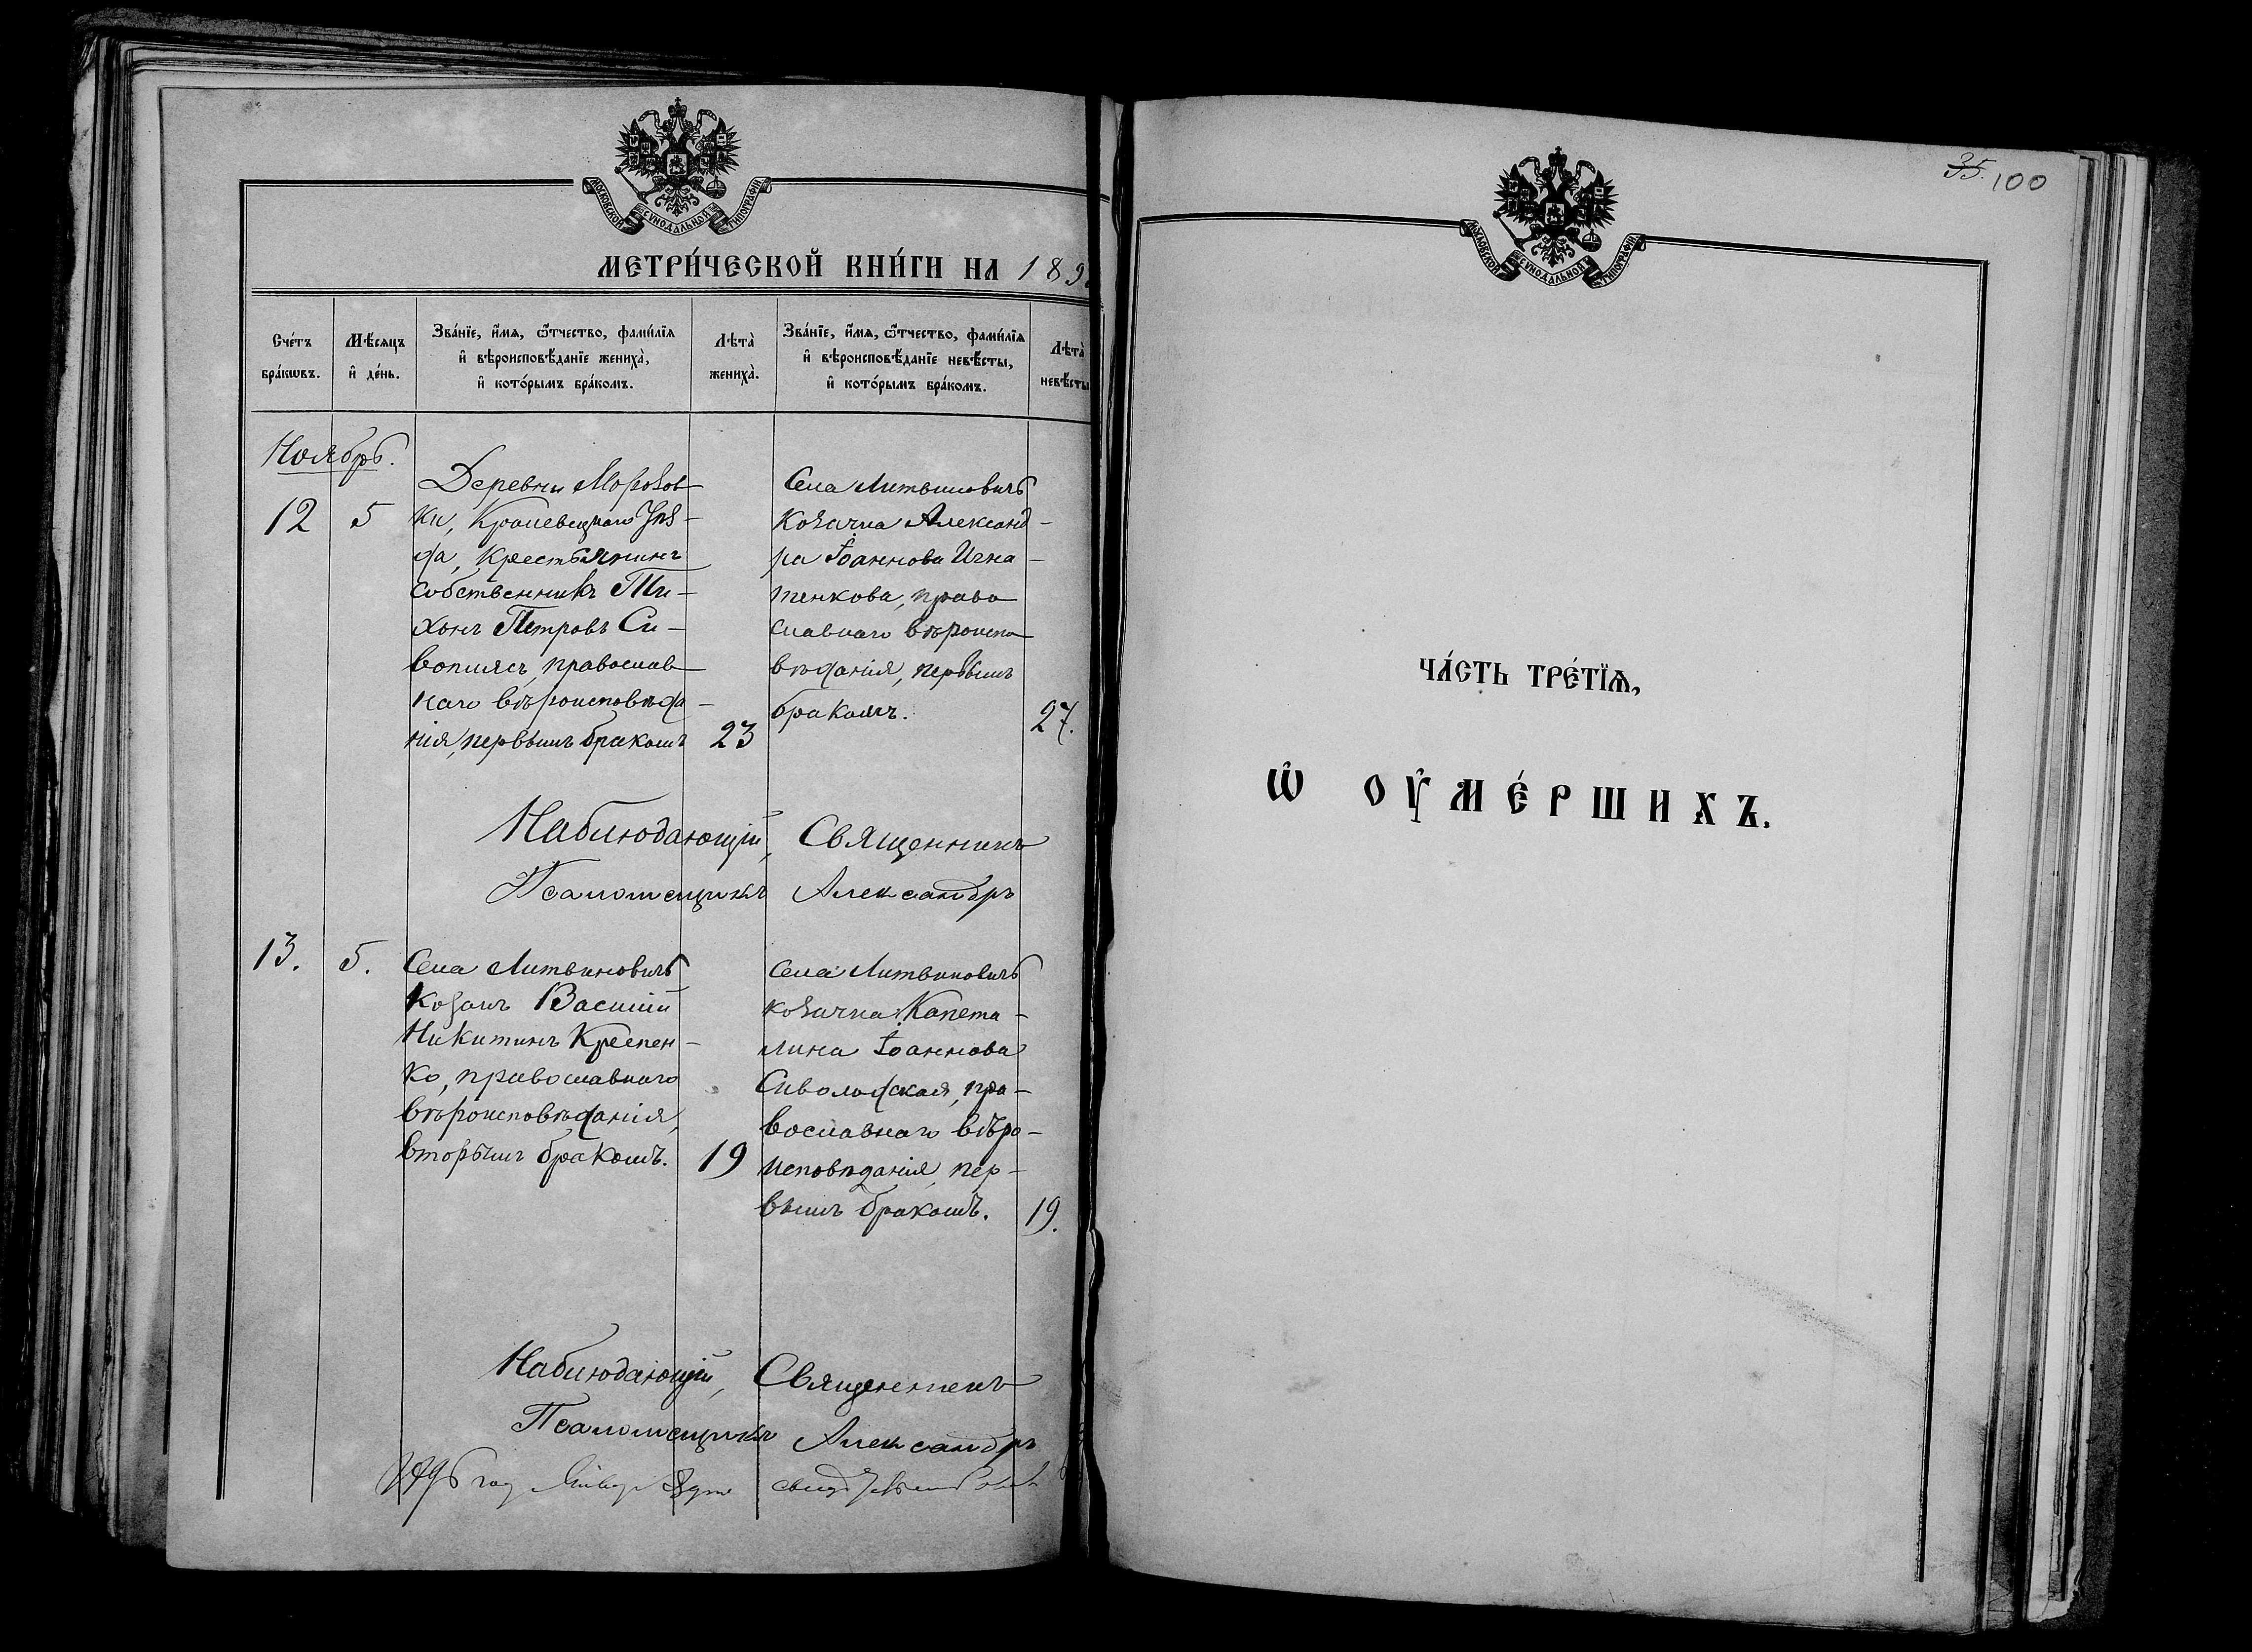 МОСКОВСКОЙ СУНОДАЛЬНОЙ ТИПОГРАФІИ
МЕТРИ́ЧЕСКОЙ КНИ́ГИ НА 189
Сче́тъ бра́кѡвъ.
Мѣ́сѧцъ и҆ де́нь.
Зва́нїе, и҆́мѧ, ѻ҆́тчество, фами́лїѧ и҆ вѣроисповѣ́данїе жениха̀, и҆ кото́рымъ бра́комъ.
Лѣта̀ жениха̀.
Зва́нїе, и҆́мѧ, ѻ҆́тчество, фами́лїѧ и҆ вѣроисповѣ́данїе невѣ́сты, и҆ кото́рымъ бра́комъ.
Лѣта̀ невѣ́сты
Ноябрь.
12
5
Деревни Морозов
ки, Кролевецкаго Уѣз-
да, крестьянинъ
собственникъ Ти-
хонъ Петровъ Си-
воплясъ, православ
наго вѣроисповѣда-
нія, первымъ бракомъ
23
Села Литвиновичь
козачка Александ-
ра Іоаннова Игна-
тенкова, право
славнаго вѣроиспо
вѣданія, первымъ
бракомъ.
27.
Наблюдающій, Священникъ
Псаломщикъ Александръ
13.
5.
Села Литвиновичь
козакъ Василій
Никитинъ Креспен-
ко, православнаго
вѣроисповѣданія,
вторымъ бракомъ.
19
Села Литвиновичь
козачка Капето-
лина Іоаннова
Сиволодская, пра-
вославнаго вѣро-
исповѣданія, пер-
вымъ бракомъ.
19.
Наблюдающій, Священникъ
Псаломщикъ Александръ
35. 100
МОСКОВСКОЙ СУНОДАЛЬНОЙ ТИПОГРАФІИ
ЧА́СТЬ ТРЕ́ТЇѦ,
Ѡ҆ ОУ҆МЕ́РШИХЪ.